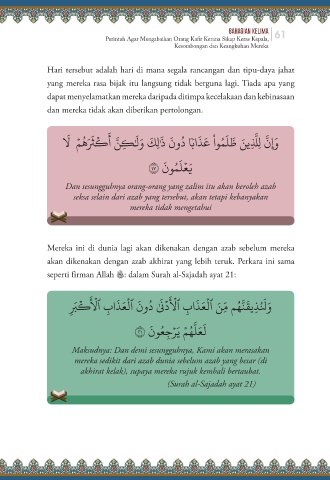 BAHAGIAN KELIMA
Perintah Agar Mengabaikan Orang Kafir Kerana Sikap Keras Kepala,
Kesombongan dan Keangkuhan Mereka
61
Hari tersebut adalah hari di mana segala rancangan dan tipu-daya jahat
yang mereka rasa bijak itu langsung tidak berguna lagi. Tiada apa yang
dapat menyelamatkan mereka daripada ditimpa kecelakaan dan kebinasaan
dan mereka tidak akan diberikan pertolongan.
وَإِنَّ لِلَّذِينَ ظَلَمُواْ عَذَابًا دُونَ ذَٰلِكَ وَلَٰكِنَّ أَكْثَرَهُمْ لَا
يَعْلَمُونَ ٤٧
Dan sesungguhnya orang-orang yang zalim itu akan beroleh azab
seksa selain dari azab yang tersebut, akan tetapi kebanyakan
mereka tidak mengetahui
Mereka ini di dunia lagi akan dikenakan dengan azab sebelum mereka
akan dikenakan dengan azab akhirat yang lebih teruk. Perkara ini sama
seperti firman Allah ﷻ: dalam Surah al-Sajadah ayat 21:
وَلَنُذِيقَنَّهُم مِّنَ ٱلْعَذَابِ ٱلْأَدْنَىٰ دُونَ ٱلْعَذَابِ ٱلْأَكْبَرِ
لَعَلَّهُمْ يَرْجِعُونَ ٢١
Maksudnya: Dan demi sesungguhnya, Kami akan merasakan
mereka sedikit dari azab dunia sebelum azab yang besar (di
akhirat kelak), supaya mereka rujuk kembali bertaubat.
(Surah al-Sajadah ayat 21)